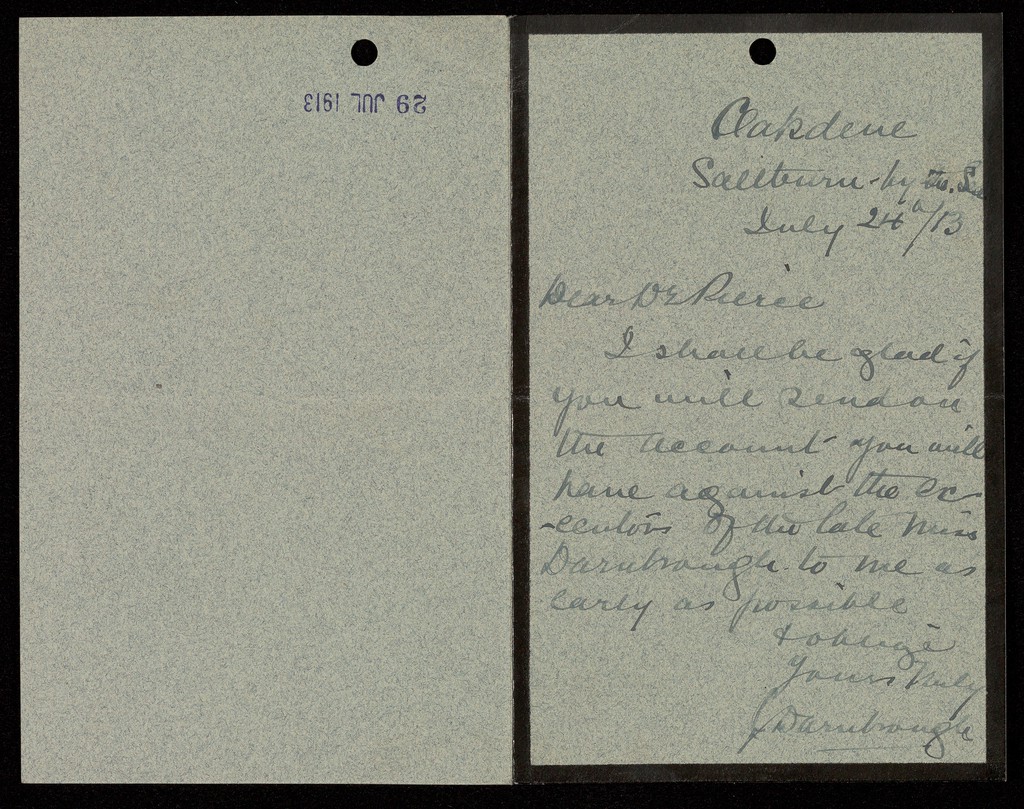 29 JUL 1913
Oakdene
Saltburn-by the. Sea
July 24th/13
Dear Dr Pierce
I shall be glad if
you will send on
the account you will
have against the ex
-ecutors of the late Miss
Darnbrough to me as
early as possible
& oblige
Yours truly
J Darnbrough